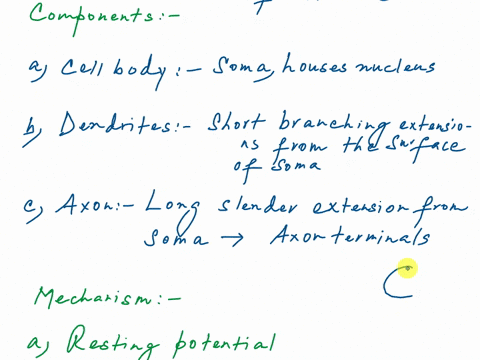 Components:-
a) Cell body:- Soma, houses nucleus
b) Dendrites:- Short branching extensio-
ns from the surface
of soma
c) Axon:- Long slender extension from
soma → Axon terminals
Mechanism:-
a) Resting potential